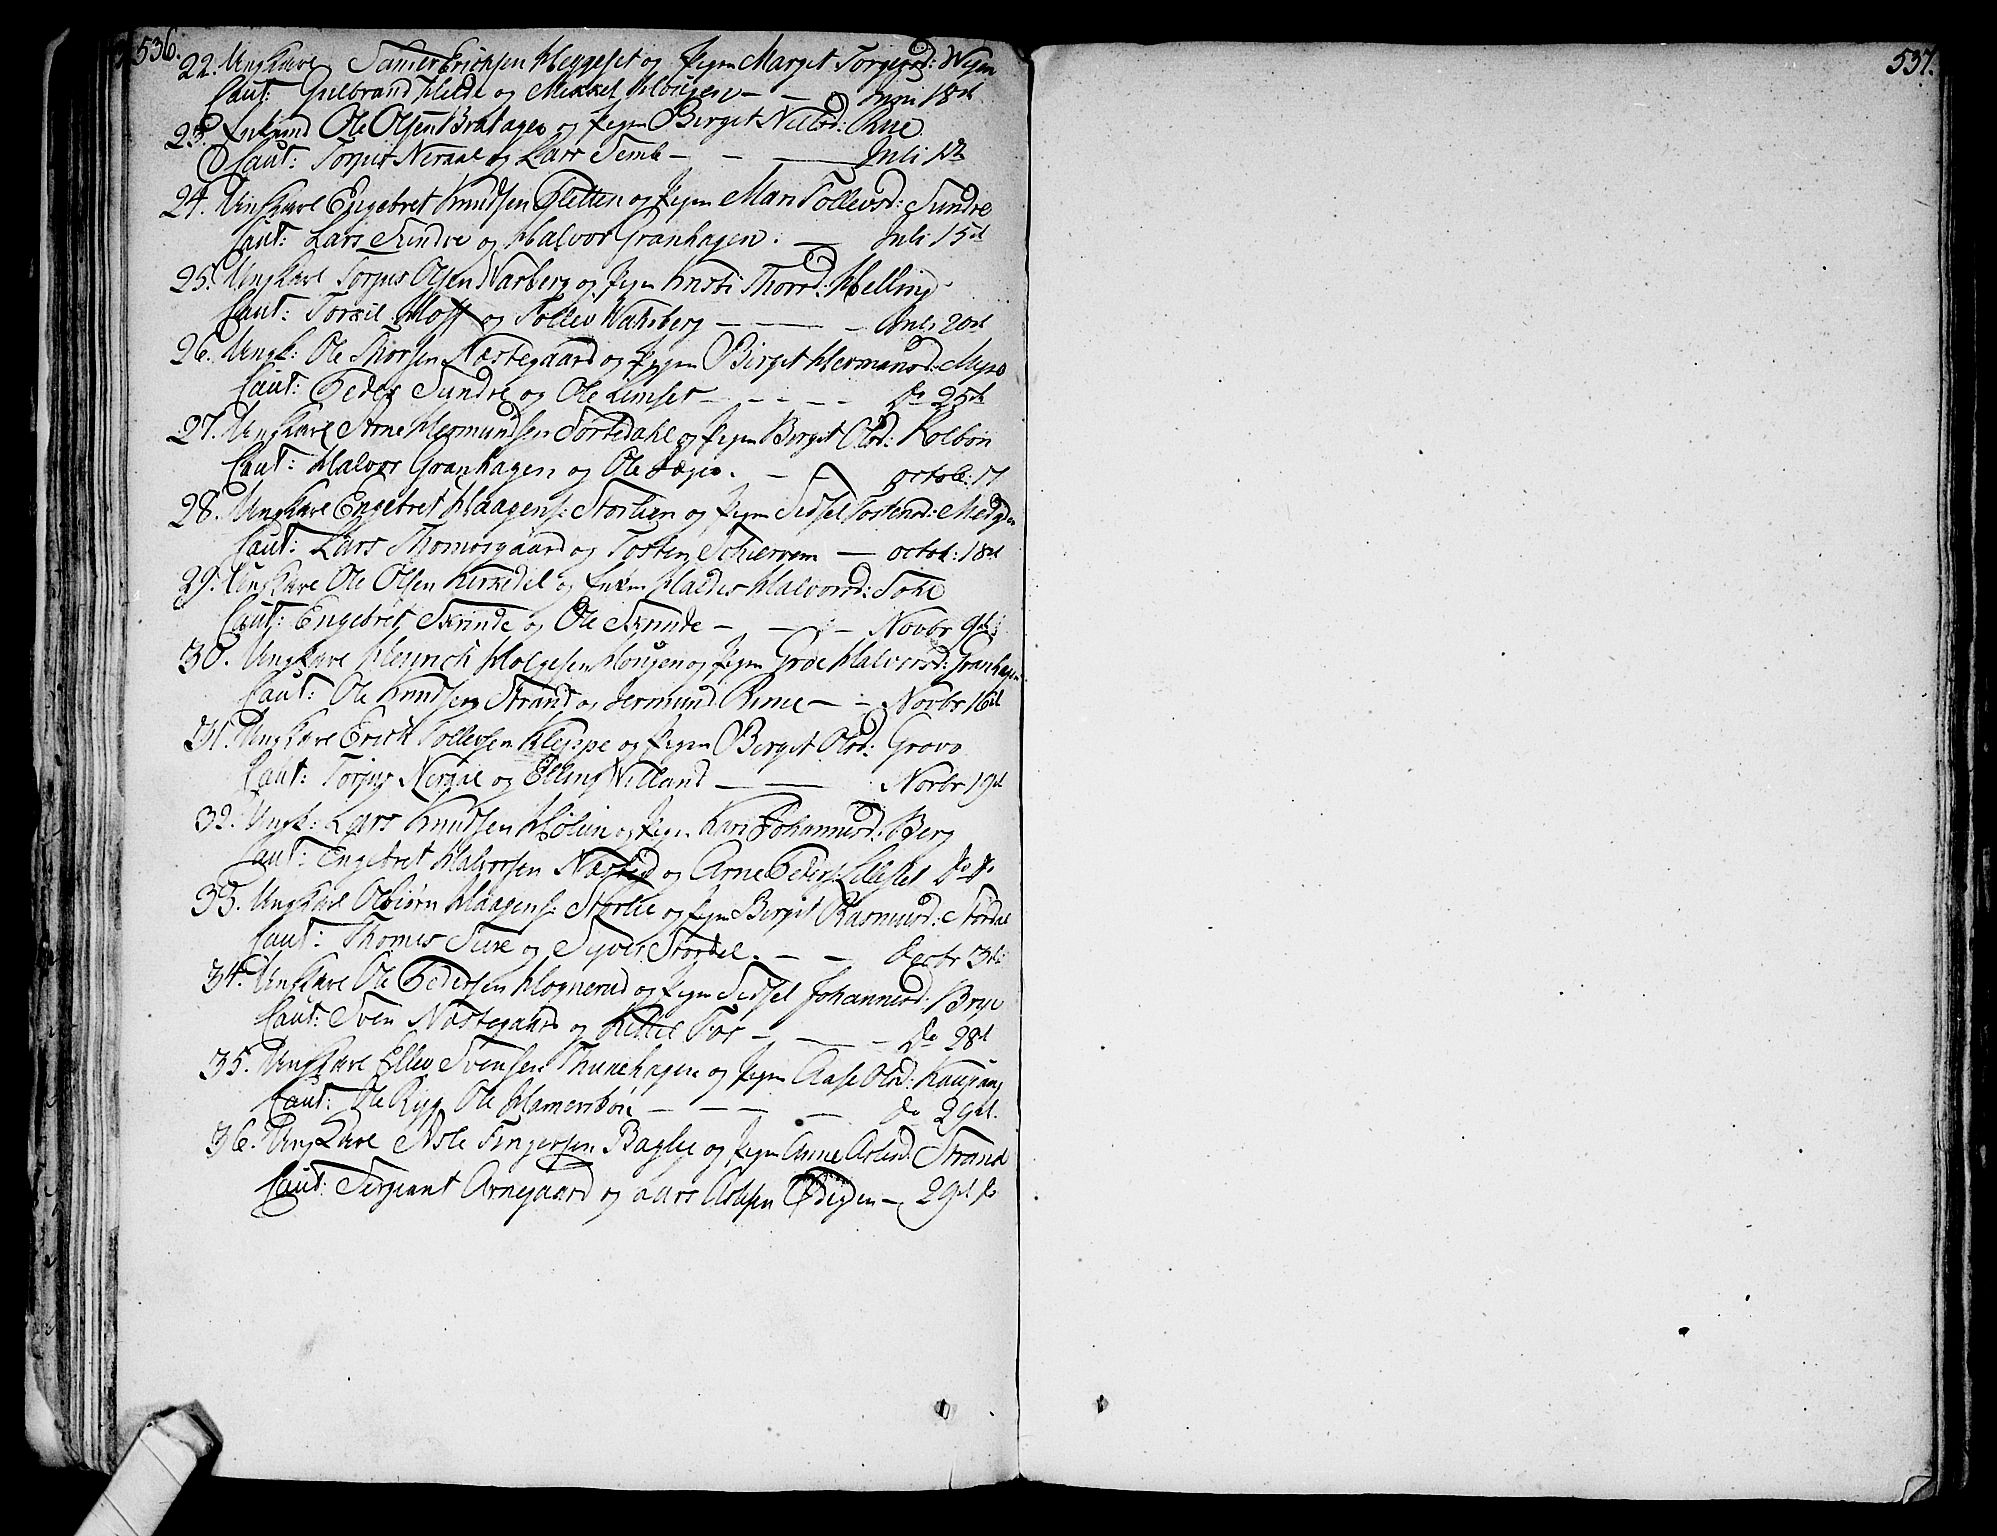 536.
22. Ungkare Sander Erichsen Heggeset og Pigen Marget Torgersd: Wigen
Caut: Gulbrand Hilde og Mikkel Hougen - - Juni 18d
23. Enkmd Ole Olsen Bratager og Pigen Berget Nilsd: Rue
Caut: Torjus Neraal og Lars Semb - - - Juli 1d
24. Ungkare Engebret Knudsen Sletten og Pigen Mari Tollevsd: Sundre
Caut: Lars Skindre og Halvor Granhagen. - Juli 15d
25. Ungkare Torjus Olsen Warberg og Pigen Kristi Thorsd: Helling
Caut: Torkil Hoff og Tollev Waksberg - - - Juli 20d
26. Ungk: Ole Thorsen Næstegaard og Pigen Birget Hermansd: Myro
Caut: Peder Sundre og Ole Limset - - - - - do 25d
27. Ungkare Arne Hermundsen Tortedahl og Pigen Berget Olsd: Kolbøn
Caut: Halvor Granhagen og Ole - - octob: 17
28. Ungkare Engebret Haagens: Storlien og Pigen Sidsel Tostensd: Medgen
Caut: Lars Thomasgaard og Tosten Schiervem - octob: 18d
29. Ungkare Ole Olsen Kirkedel og Enken Haldis Halvorsd: Toke
Caut: Engebret Skrinde og Ole Skrinde - - - Novbr 9d
30. Ungkare Henrick Holgesen Hougen og Pigen Groe Halvorsd: Granhagen
Caut: Ole Knudsen Strand og Jermund Rime - - Novbr 16d
31. Ungkare Erick Tollevsen Kleppe og Pigen Berget Olsd: Grovo
Caut: Torjus Neraal og Elling Villand - - Novbr 19d
32. Ungk: Lars Knudsen Holien og Pigen Kari Johannesd: Berg
Caut: Engebret Halvorsen Næsted og Arne Peders: Lilleslet do do
33. Ungkare Olbiørn Haagens: Storlie og Pigen Bergit Rasmusd: Stordal
Caut: Thomes Ture og Syver Stordel. - - Decbr 3d
34. Ungkare Ole Pedersen Hognerud og Pigen Sidsel Johannesd: Brye
Caut: Sven Næstegaard og Kittil Tor - - - do 28d
35. Ungkare Ellev Svensen Thunehagen og Pigen Aase Olsd: Kaupang
Caut: Ole Ryg Ole Hamersbøn - - - - do 29d.
36. Ungkare Asle Fingersen Baglie og Pigen Anne Aslesd: Strand
Caut: Sergeant Arnegaard og Lars Aslesen Ødegen - 29d do
537.